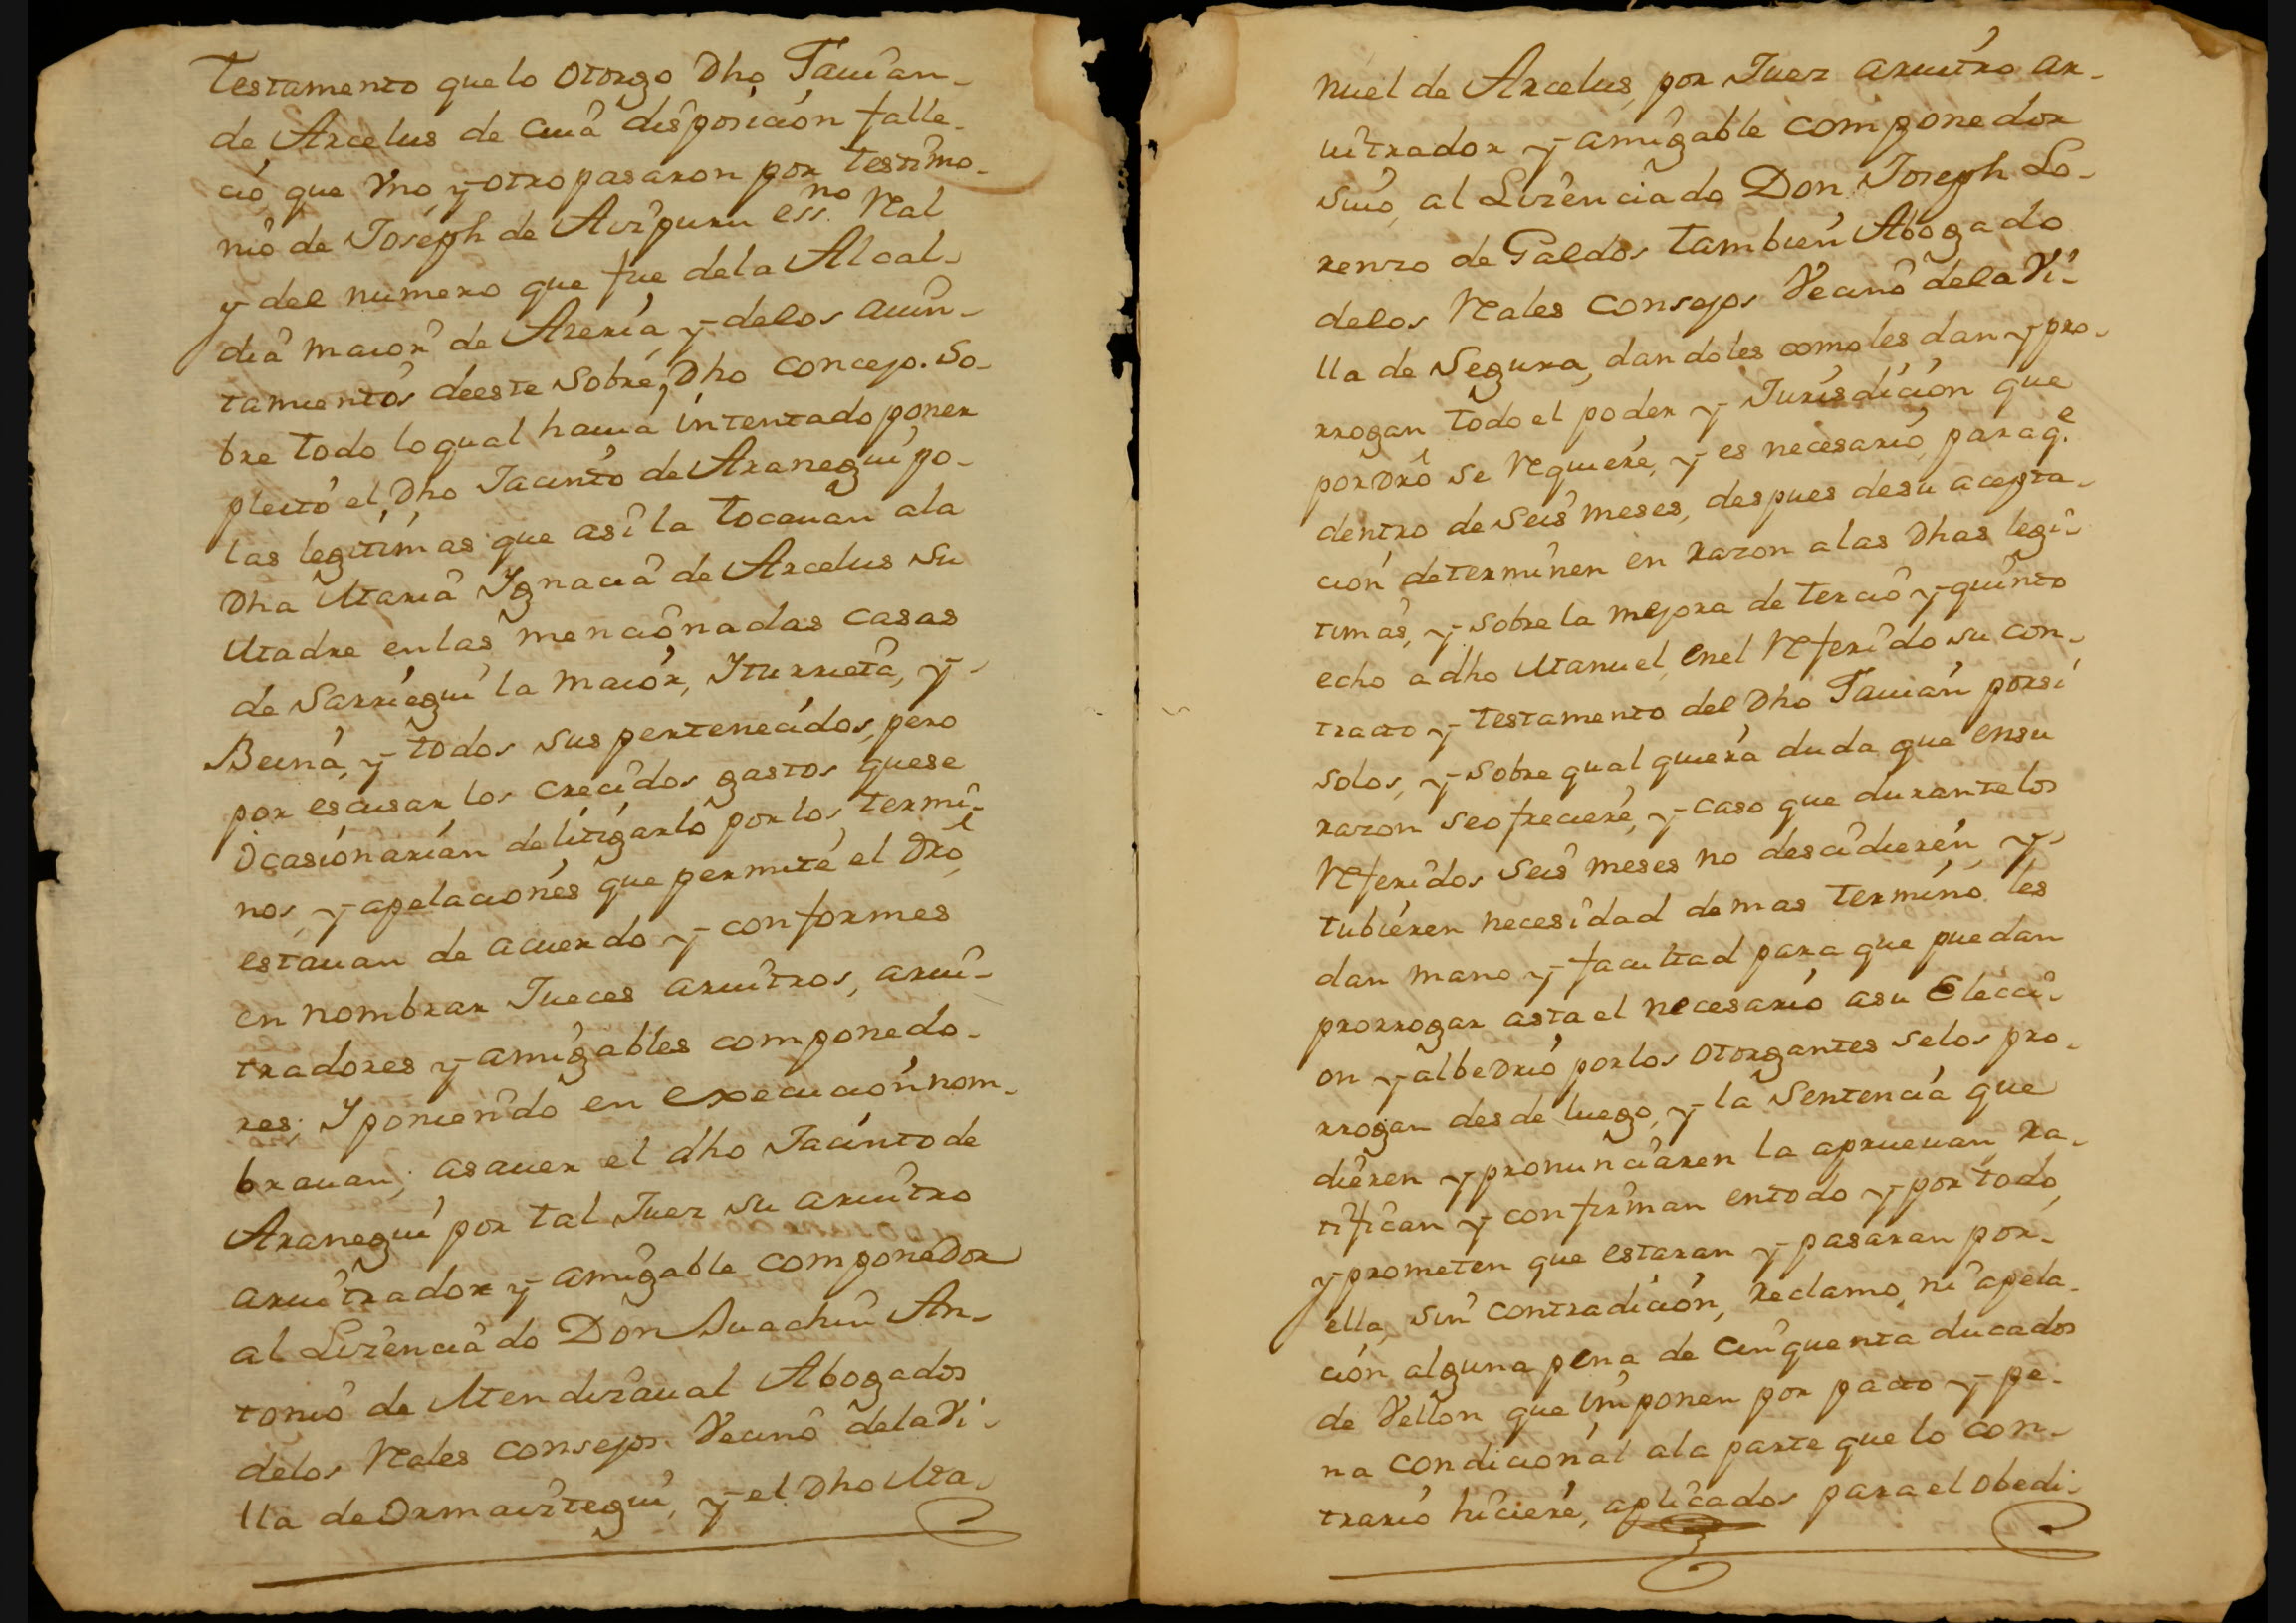 Testamento que lo otorgo Dho Fauian
de Arcelus de cuiâ disposiciòn falle-
ciò, que Vno, y otro pasaron por testimo-
niô de Joseph de Aizpuru ess.no Real
y del numero que fue dela Alcal-
diâ maior de Arería, y delos auin-
tamientos deeste sobre Dho concejo. So-
bre todo lo qual hauia intentado poner
pleito el Dho Jacinto de Aranegui por
las legitimas que asi la tocauan ala
Dha Mariâ Ygnaciâ de Arcelus su
Madre enlas mencionadas casas
de Sarriegui la maiòr, Yturrietâ, y
Beiná, y todos sus pertenecidos, pero
por escusar los crecidos gastos quese
ocasionarían de litigarlo por los termi-
nos, y apelaciones que permite el Dro,
estauan de acuerdo y conformes
en nombrar Jueces aruitros, arui-
tradores y amigables componedo-
res; Y poniendo en execuciòn nom-
brauan; asauer el dho Jacinto de
Aranegui por tal Juez su aruitro
aruitrador y amigable componedor
al Lizenciâdo Don Juachin An-
toniô de Mendizaual Abogados
delos Reales consejos. Vecino dela Vi-
lla de Ormaiztegui, y el Dho Ma-
nuel de Arcelus, por Juez aruitro ar-
uitrador y amigable componedor
Suio, al Lizenciado Don Joseph Lo-
renzo de Galdos tambien Abogado
delos Reales consejos Vecino dela Vi-
lla de Segura, dandoles como les dan y pro-
rrogan todo el poder y Jurisdiciòn que
por Dro se Requiere, y es necesariò, para q.e
dentro de seis meses, despues desu acepta-
ciòn determinen en razon alas Dhas legi-
timas, y sobre la mejora de terciô y quinto
echo a dho Manuel, enel Referido su con-
tracto y testamento del Dho Fauián por si
solos, y sobre qual quiera duda que ensu
razon seofreciere, y caso que durantelos
Referidos seis meses no desidieren, y
tubieren necesidad demas termino les
dan mano y facultad para que puedan
prorrogar asta el necesario asu Elecci-
on y albedriô por los otorgantes selos pro-
rrogan desde luego, y la Sentencia que
dieren y pronunciaren la aprueuan, ra-
tifican y confirman entodo y por todo,
y prometen que estaran y pasaran por
ella, sin contradiciòn, reclamo, ni apela-
ción alguna pena de cinquenta ducados
de Vellon que imponen por pacto y pe-
na condicionál ala parte que lo con-
trariô hiciere, aplicados para el obedi-